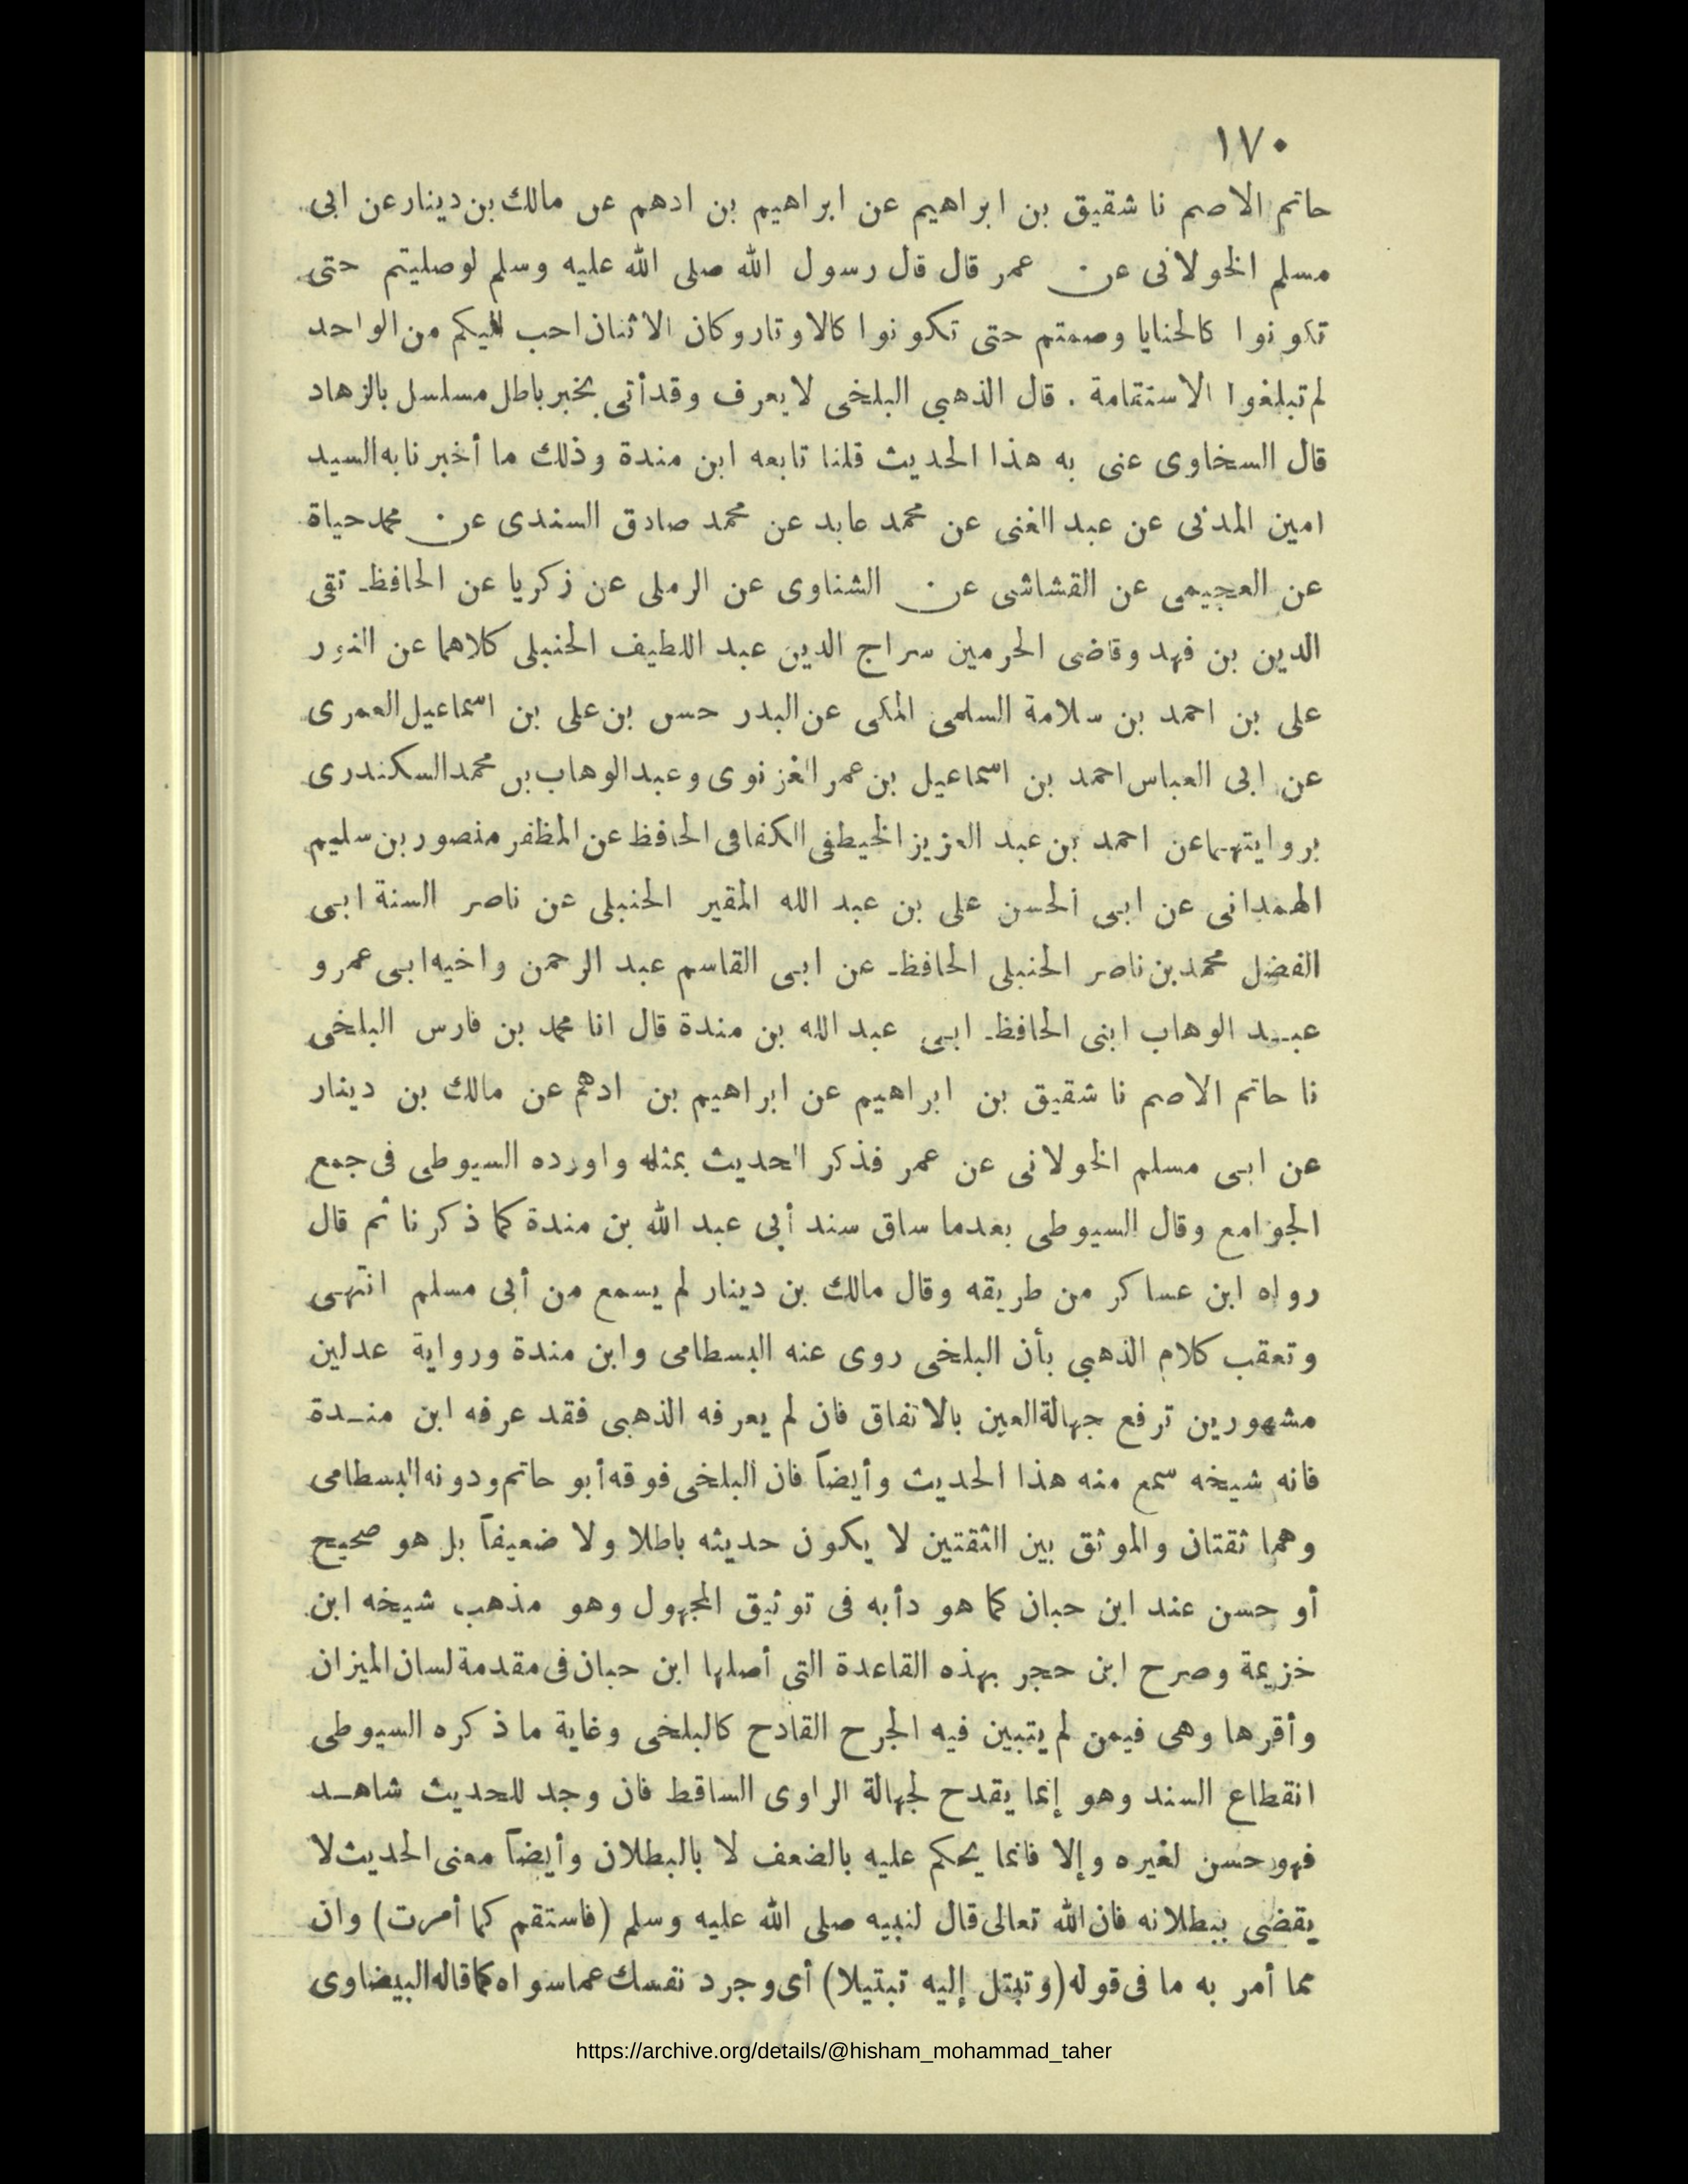 ١٧٠
حاتم الاصم نا شقيق بن ابراهيم عن ابراهيم بن ادهم عن مالك بن دينار عن ابى
مسلم الخولانى عن عمر قال قال رسول الله صلى الله عليه وسلم لو صليتم حتى
تكونوا كالحنايا وصمتم حتى تكونوا كالاوتار وكان الاثنان احب اليكم من الواحد
لم تبلغوا الاستقامة . قال الذهبي البلخى لا يعرف وقد أتى بخبر باطل مسلسل بالزهاد
قال السخاوى عنى به هذا الحديث قلنا تابعه ابن مندة وذلك ما أخبرنا به السيد
امين المدنى عن عبد الغنى عن محمد عابد عن محمد صادق السندى عن محمد حياة
عن العجيمى عن القشاشى عن الشناوى عن الرملى عن زكريا عن الحافظ تقى
الدين بن فهد وقاضى الحرمين سراج الدين عبد اللطيف الحنبلى كلاهما عن النور
على بن احمد بن سلامة السلمى المكى عن البدر حسن بن على بن اسماعيل العمرى
عن ابى العباس احمد بن اسماعيل بن عمر الغزنوى وعبد الوهاب بن محمد السكندرى
بروايتهما عن احمد بن عبد العزيز الخيطفى الكفافى الحافظ عن المظفر منصور بن سليم
الهمدانى عن ابى الحسن على بن عبد الله المقير الحنبلى عن ناصر السنة ابى
الفضل محمد بن ناصر الحنبلى الحافظ عن ابى القاسم عبد الرحمن واخيه ابى عمرو
عبد الوهاب ابنى الحافظ ابى عبد الله بن مندة قال انا محمد بن فارس البلخى
نا حاتم الاصم نا شقيق بن ابراهيم عن ابراهيم بن ادهم عن مالك بن دينار
عن ابى مسلم الخولانى عن عمر فذكر الحديث بمثله واورده السيوطى فى جمع
الجوامع وقال السيوطى بعدما ساق سند أبى عبد الله بن مندة كما ذكرنا ثم قال
رواه ابن عساكر من طريقه وقال مالك بن دينار لم يسمع من أبى مسلم انتهى
وتعقب كلام الذهبي بأن البلخى روى عنه البسطامى وابن مندة ورواية عدلين
مشهورين ترفع جهالة العين بالاتفاق فان لم يعرفه الذهبى فقد عرفه ابن مندة
فانه شيخه سمع منه هذا الحديث وأيضاً فان البلخى فوقه أبو حاتم ودونه البسطامى
وهما ثقتان والموثق بين الثقتين لا يكون حديثه باطلا ولا ضعيفاً بل هو صحيح
أو حسن عند ابن حبان كما هو دأبه فى توثيق المجهول وهو مذهب شيخه ابن
خزيمة وصرح ابن حجر بهذه القاعدة التى أصلها ابن حبان فى مقدمة لسان الميزان
وأقرها وهى فيمن لم يتبين فيه الجرح القادح كالبلخى وغاية ما ذكره السيوطى
انقطاع السند وهو إنما يقدح لجهالة الراوى الساقط فان وجد للحديث شاهد
فهو حسن لغيره وإلا فانما يحكم عليه بالضعف لا بالبطلان وأيضاً معنى الحديث لا
يقضى ببطلانه فان الله تعالى قال لنبيه صلى الله عليه وسلم (فاستقم كما أمرت) وان
مما أمر به ما فى قوله (وتبتل إليه تبتيلا) أى وجرد نفسك عما سواه كما قاله البيضاوى
https://archive.org/details/@hisham_mohammad_taher